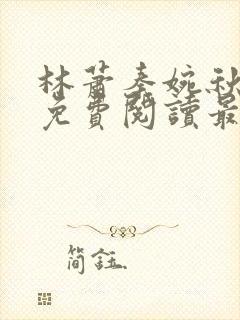 林蕭秦婉秋
免費閱讀最
簡鈺